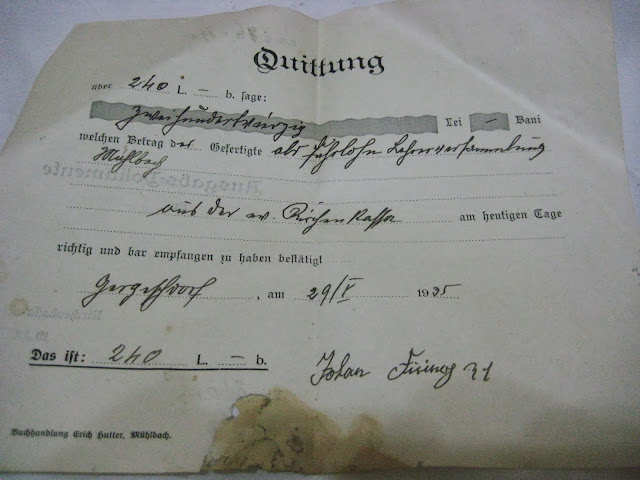 Quittung
über 240 L. — b. sage:
Zweihundertvierzig Lei — Bani
welchen Betrag der Gefertigte als Fuhrlohn Lehrerversammlung
Mühlbach
Ausgabs-Dokumente
aus der ev. Kirchenkassa am heutigen Tage
richtig und bar empfangen zu haben bestätigt
Gergeschdorf, am 29/V 1935
Das ist: 240 L. — b.
Buchhandlung Erich Hutter, Mühlbach.